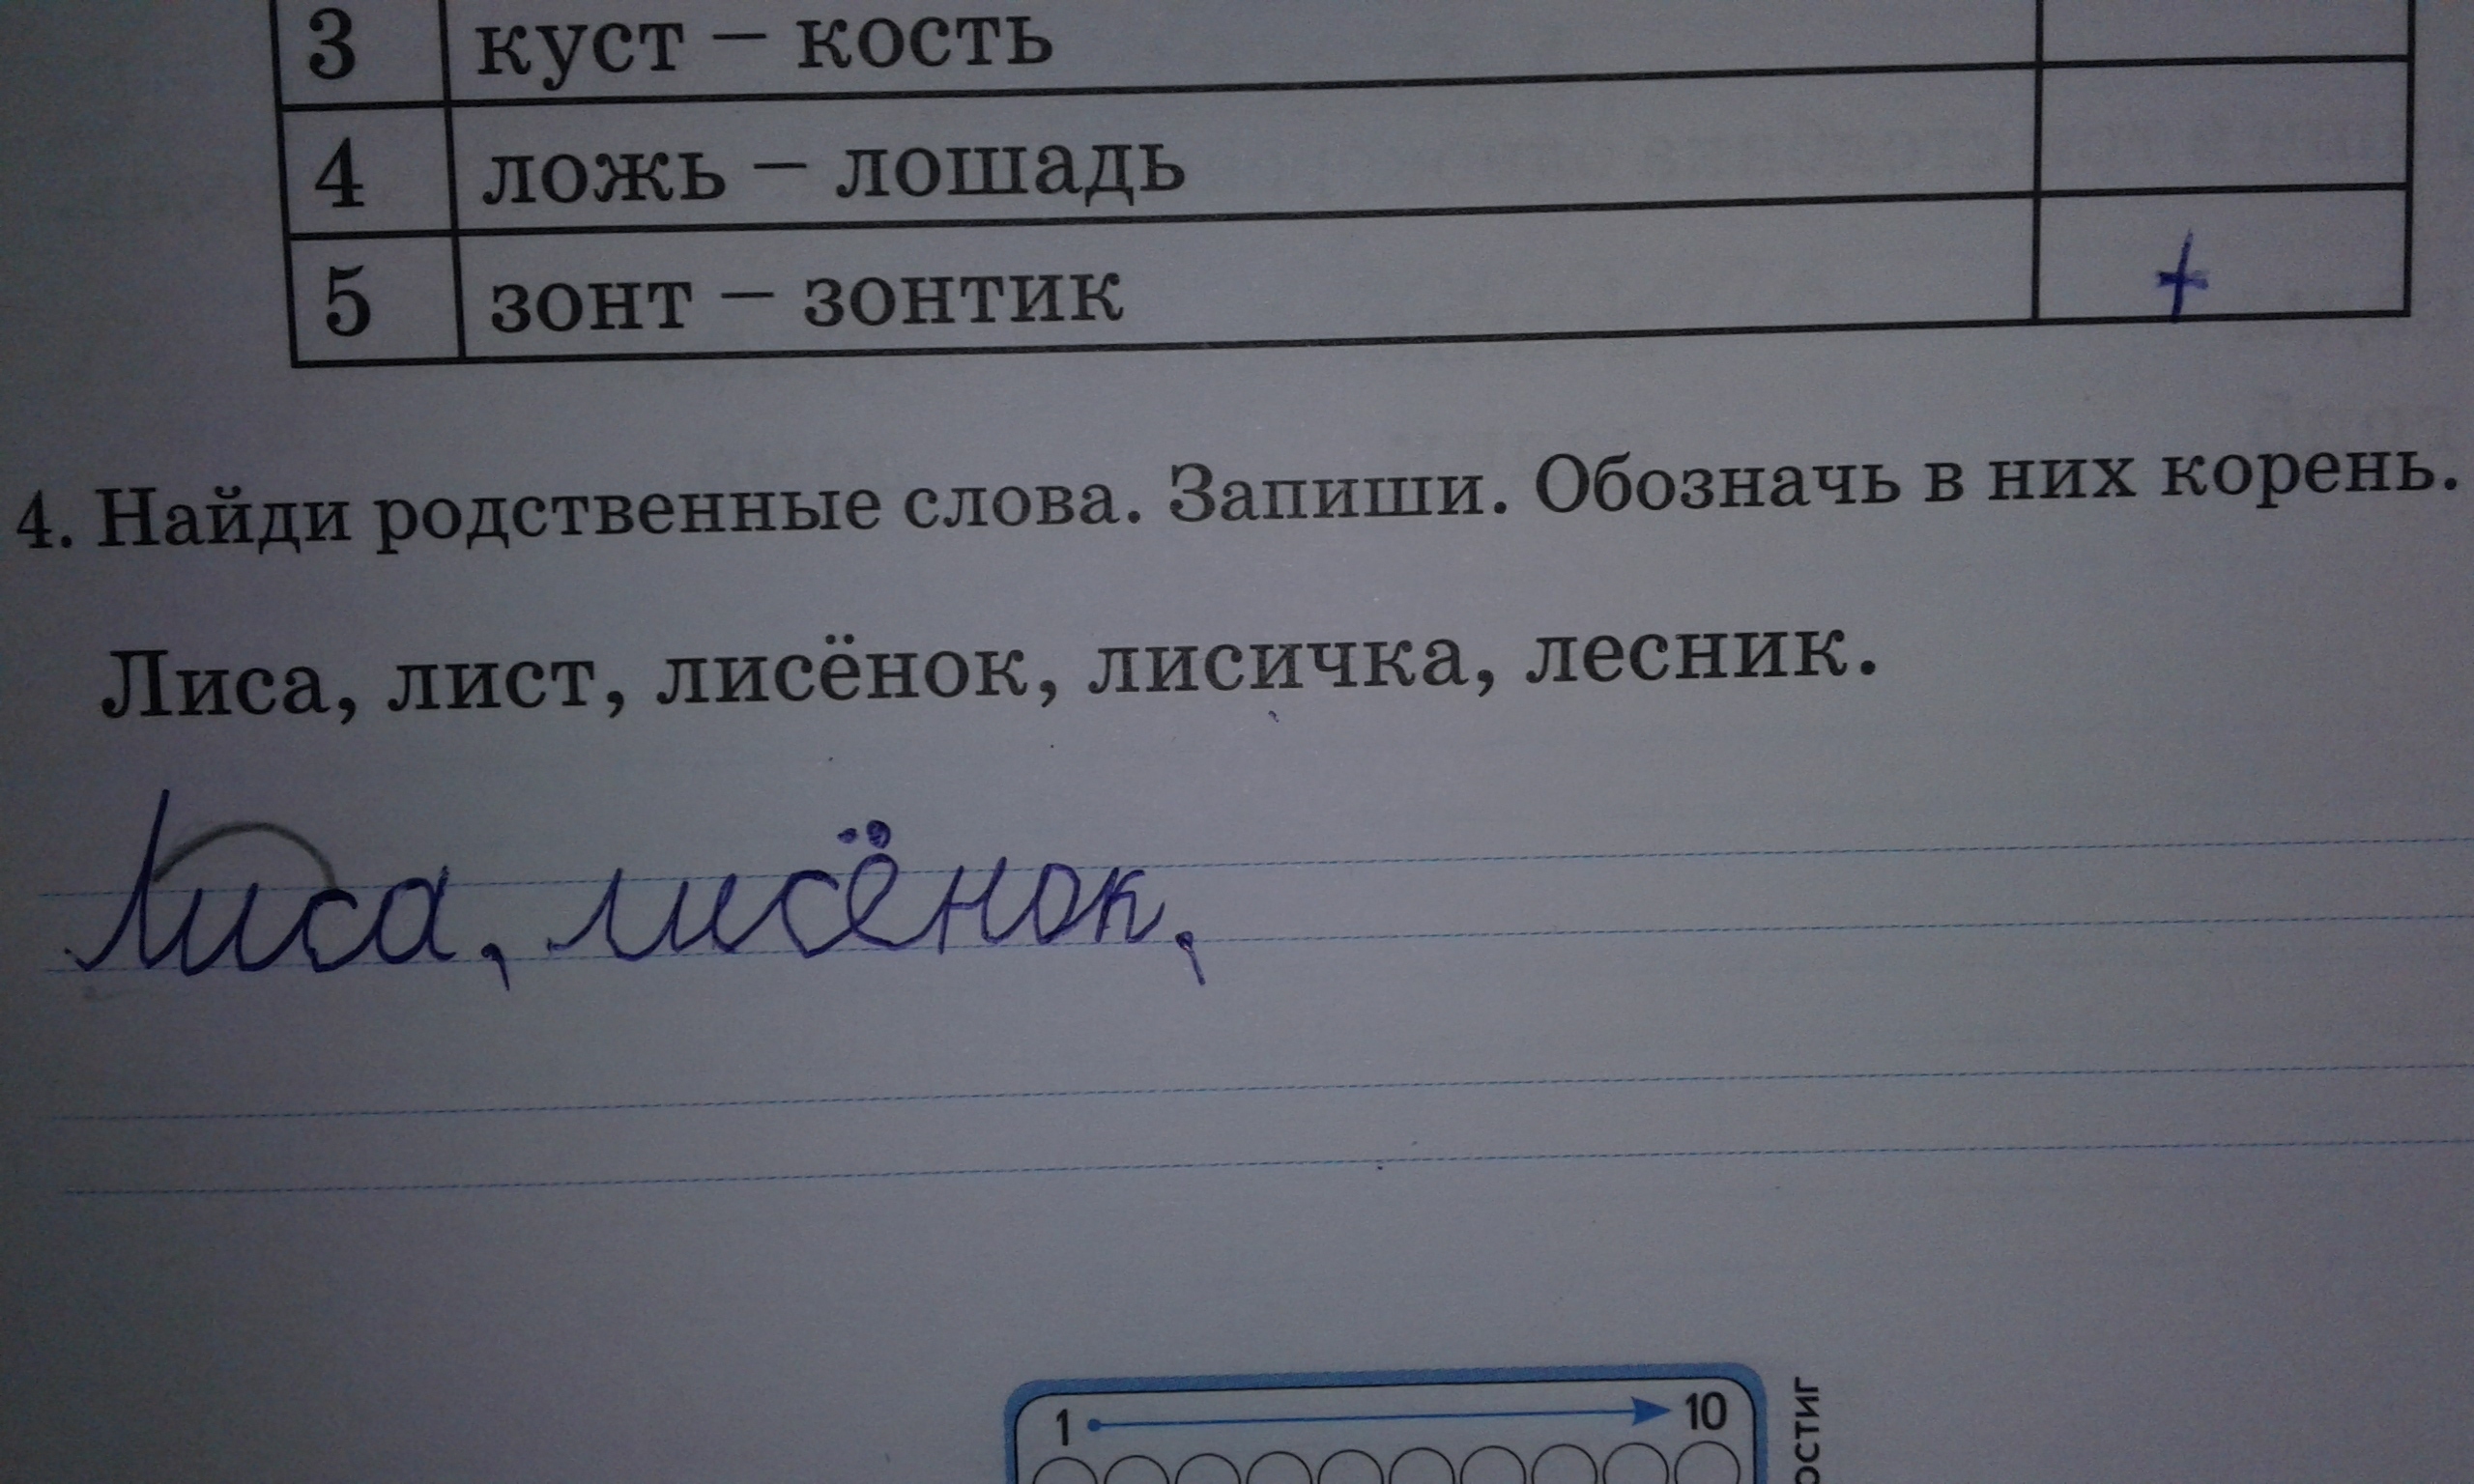 3 куст – кость
4 ложь – лошадь
5 зонт – зонтик +
4. Найди родственные слова. Запиши. Обозначь в них корень.
Лиса, лист, лисёнок, лисичка, лесник.
Лиса, лисёнок,
1 10